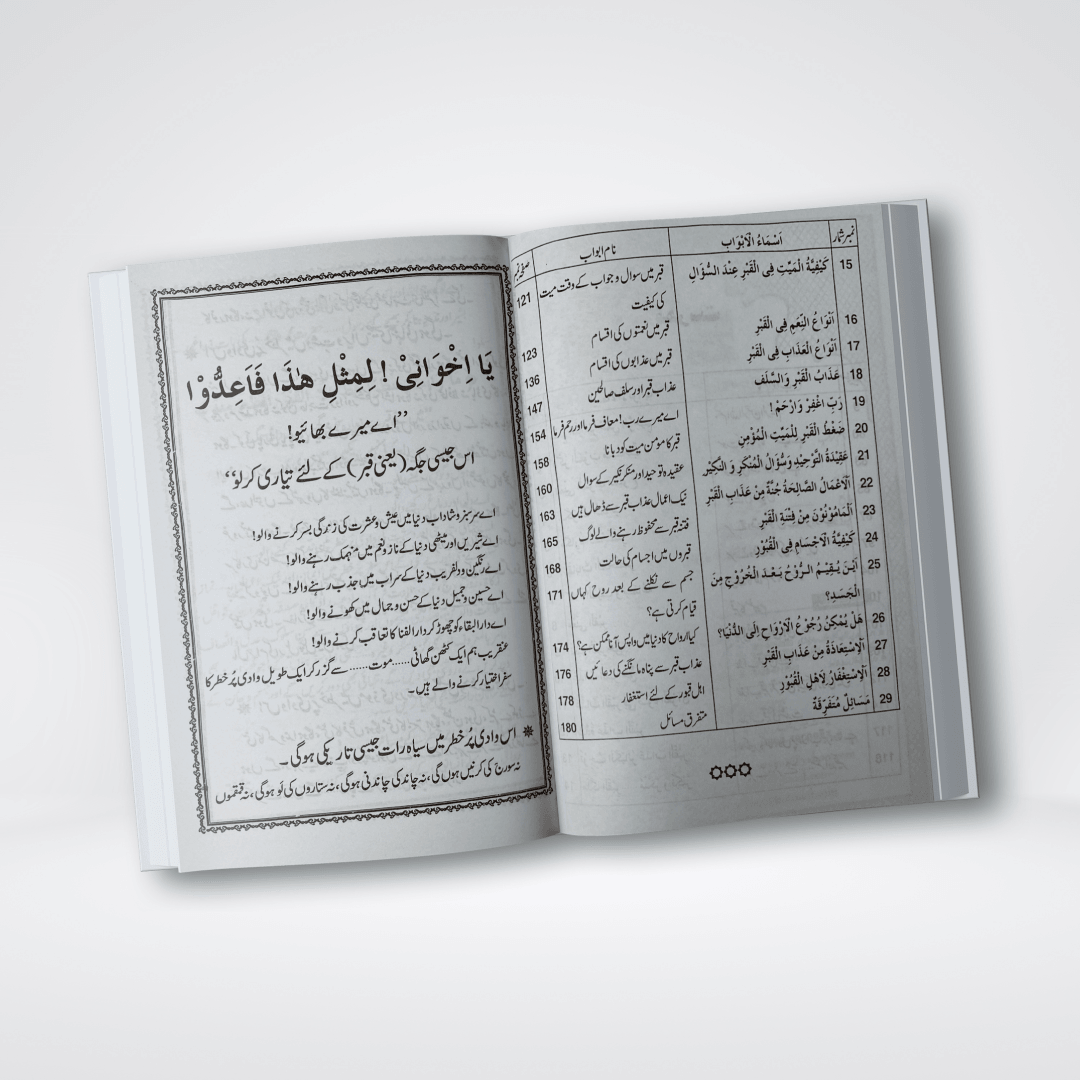 نمبر شمار اَسْمَاءُ الْاَبْوَاب نام ابواب صفحہ نمبر
15 كَيْفِيَّةُ الْمَيِّتِ فِى الْقَبْرِ عِنْدَ السُّؤَالِ قبر میں سوال و جواب کے وقت میت 121
کی کیفیت
16 اَنْوَاعُ النِّعَمِ فِى الْقَبْرِ قبر میں نعمتوں کی اقسام 123
17 اَنْوَاعُ الْعَذَابِ فِى الْقَبْرِ قبر میں عذابوں کی اقسام 136
18 عَذَابُ الْقَبْرِ وَالسَّلَف عذاب قبر اور سلف صالحین 147
19 رَبِّ اغْفِرْ وَارْحَمْ! اے میرے رب! معاف فرما اور رحم فرما 154
20 ضَغْطُ الْقَبْرِ لِلْمَيِّتِ الْمُؤْمِنِ قبر کا مومن میت کو دبانا 158
21 عَقِيْدَةُ التَّوْحِيْدِ وَسُؤَالُ الْمُنْكَرِ وَ النَّكِيْرِ عقیدہ توحید اور منکر نکیر کے سوال 160
22 اَلْاَعْمَالُ الصَّالِحَةُ جُنَّةٌ مِنْ عَذَابِ الْقَبْرِ نیک اعمال عذاب قبر سے ڈھال ہیں 163
23 اَلْمَامُوْنُوْنَ مِنْ فِتْنَةِ الْقَبْرِ فتنہ قبر سے محفوظ رہنے والے لوگ 165
24 كَيْفِيَّةُ الْاَجْسَامِ فِى الْقُبُوْرِ قبروں میں اجسام کی حالت 168
25 اَيْنَ يُقِيْمُ الرُّوْحُ بَعْدَ الْخُرُوْجِ مِنَ جسم سے نکلنے کے بعد روح کہاں 171
الْجَسَدِ؟ قیام کرتی ہے؟
26 هَلْ يُمْكِنُ رُجُوْعُ الْاَرْوَاحِ اِلَى الدُّنْيَا؟ کیا ارواح کا دنیا میں واپس آنا ممکن ہے؟ 174
27 اَلْاِسْتِعَاذَةُ مِنْ عَذَابِ الْقَبْرِ عذاب قبر سے پناہ مانگنے کی دعائیں 176
28 اَلْاِسْتِغْفَارُ لِاَهْلِ الْقُبُوْرِ اہل قبور کے لئے استغفار 178
29 مَسَائِلٌ مُتَفَرِّقَةٌ متفرق مسائل 180
يَا اِخْوَانِىْ! لِمِثْلِ هٰذَا فَاَعِدُّوْا
”اے میرے بھائیو!
اس جیسی جگہ (یعنی قبر) کے لئے تیاری کر لو“
اے سرسبز و شاداب دنیا میں عیش و عشرت کی زندگی بسر کرنے والو!
اے شیریں اور میٹھی دنیا کے ناز و نعم میں منہمک رہنے والو!
اے رنگین و دلفریب دنیا کے سراب میں جذب رہنے والو!
اے حسین و جمیل دنیا کے حسن و جمال میں کھونے والو!
اے دار البقاء کو چھوڑ کر دار الفنا کا تعاقب کرنے والو!
عنقریب ہم ایک کٹھن گھاٹی......موت......سے گزر کر ایک طویل وادی پُر خطر کا
سفر اختیار کرنے والے ہیں۔
❋ اس وادی پُر خطر میں سیاہ رات جیسی تاریکی ہوگی۔
نہ سورج کی کرنیں ہوں گی، نہ چاند کی چاندنی ہوگی، نہ ستاروں کی لَو ہوگی، نہ قمقموں